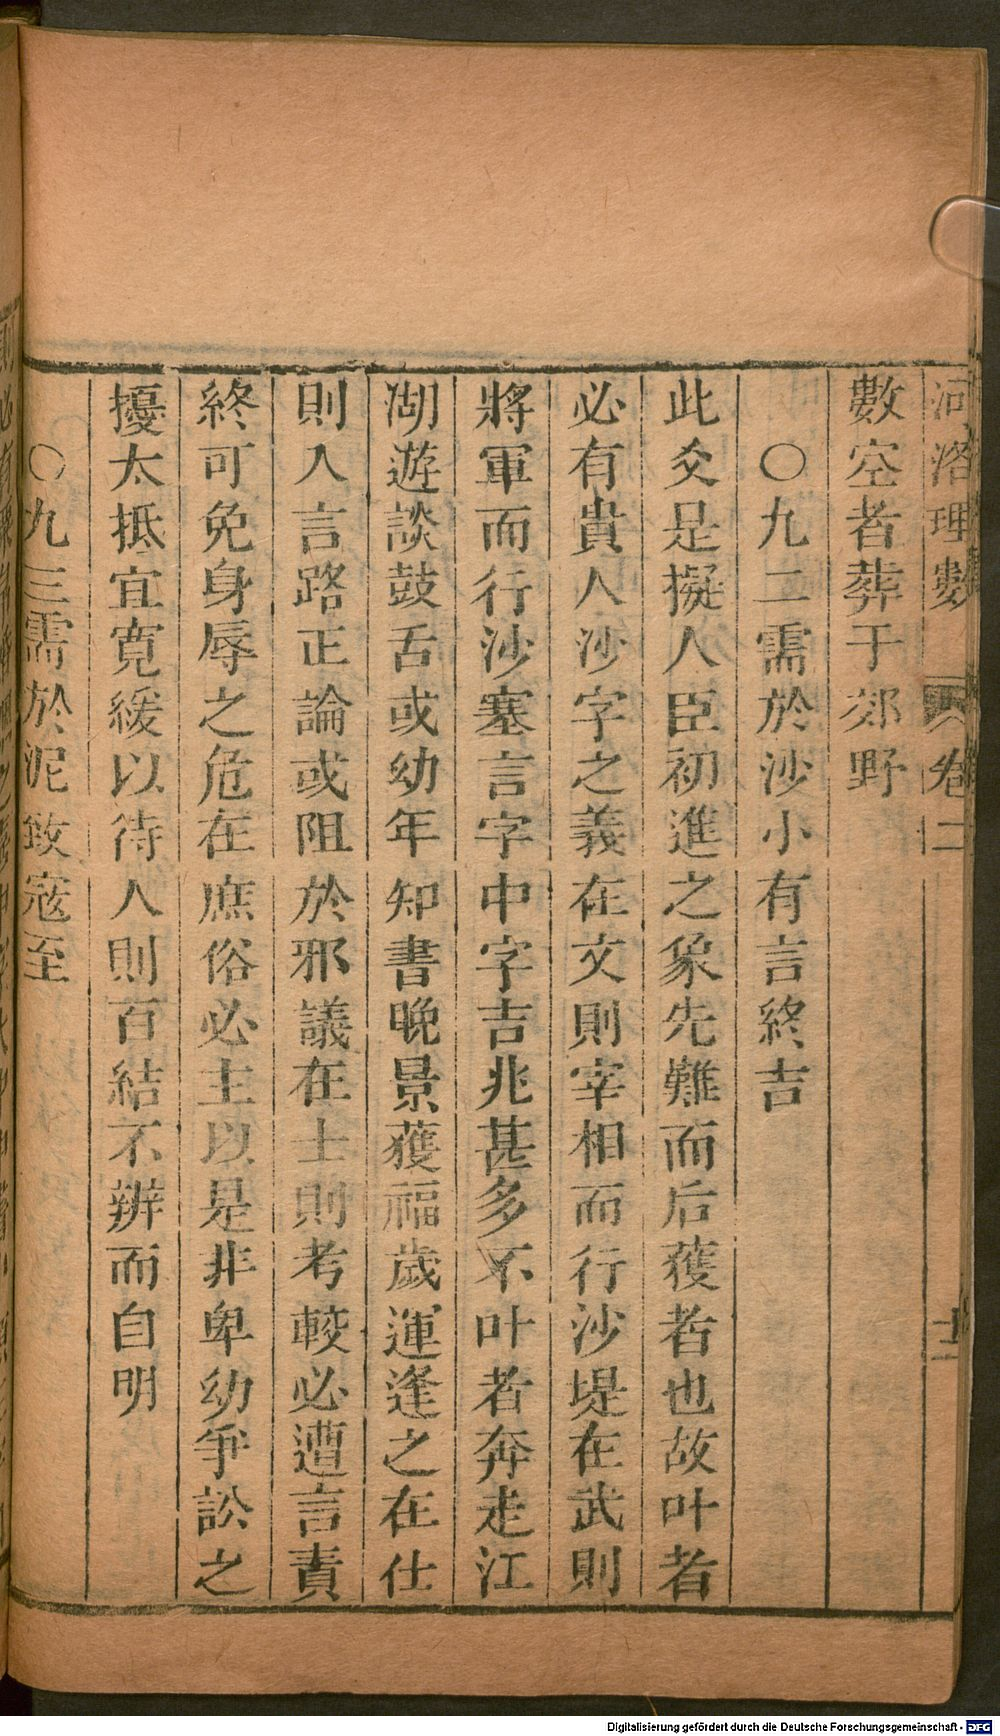 河洛理數 卷二 十二
數空者葬于郊野
○九二需於沙小有言終吉
此爻是擬人臣初進之象先難而后獲者也故叶者
必有貴人沙字之義在文則宰相而行沙堤在武則
將軍而行沙塞言字中字吉兆甚多不叶者奔走江
湖遊談鼓舌或幼年知書晚景獲福歲運逢之在仕
則入言路正論或阻於邪議在士則考較必遭言責
終可免身辱之危在庶俗必主以是非卑幼爭訟之
擾太抵宜寛緩以待人則百結不辨而自明
○九三需於泥致寇至
Digitalisierung gefördert durch die Deutsche Forschungsgemeinschaft - DFG